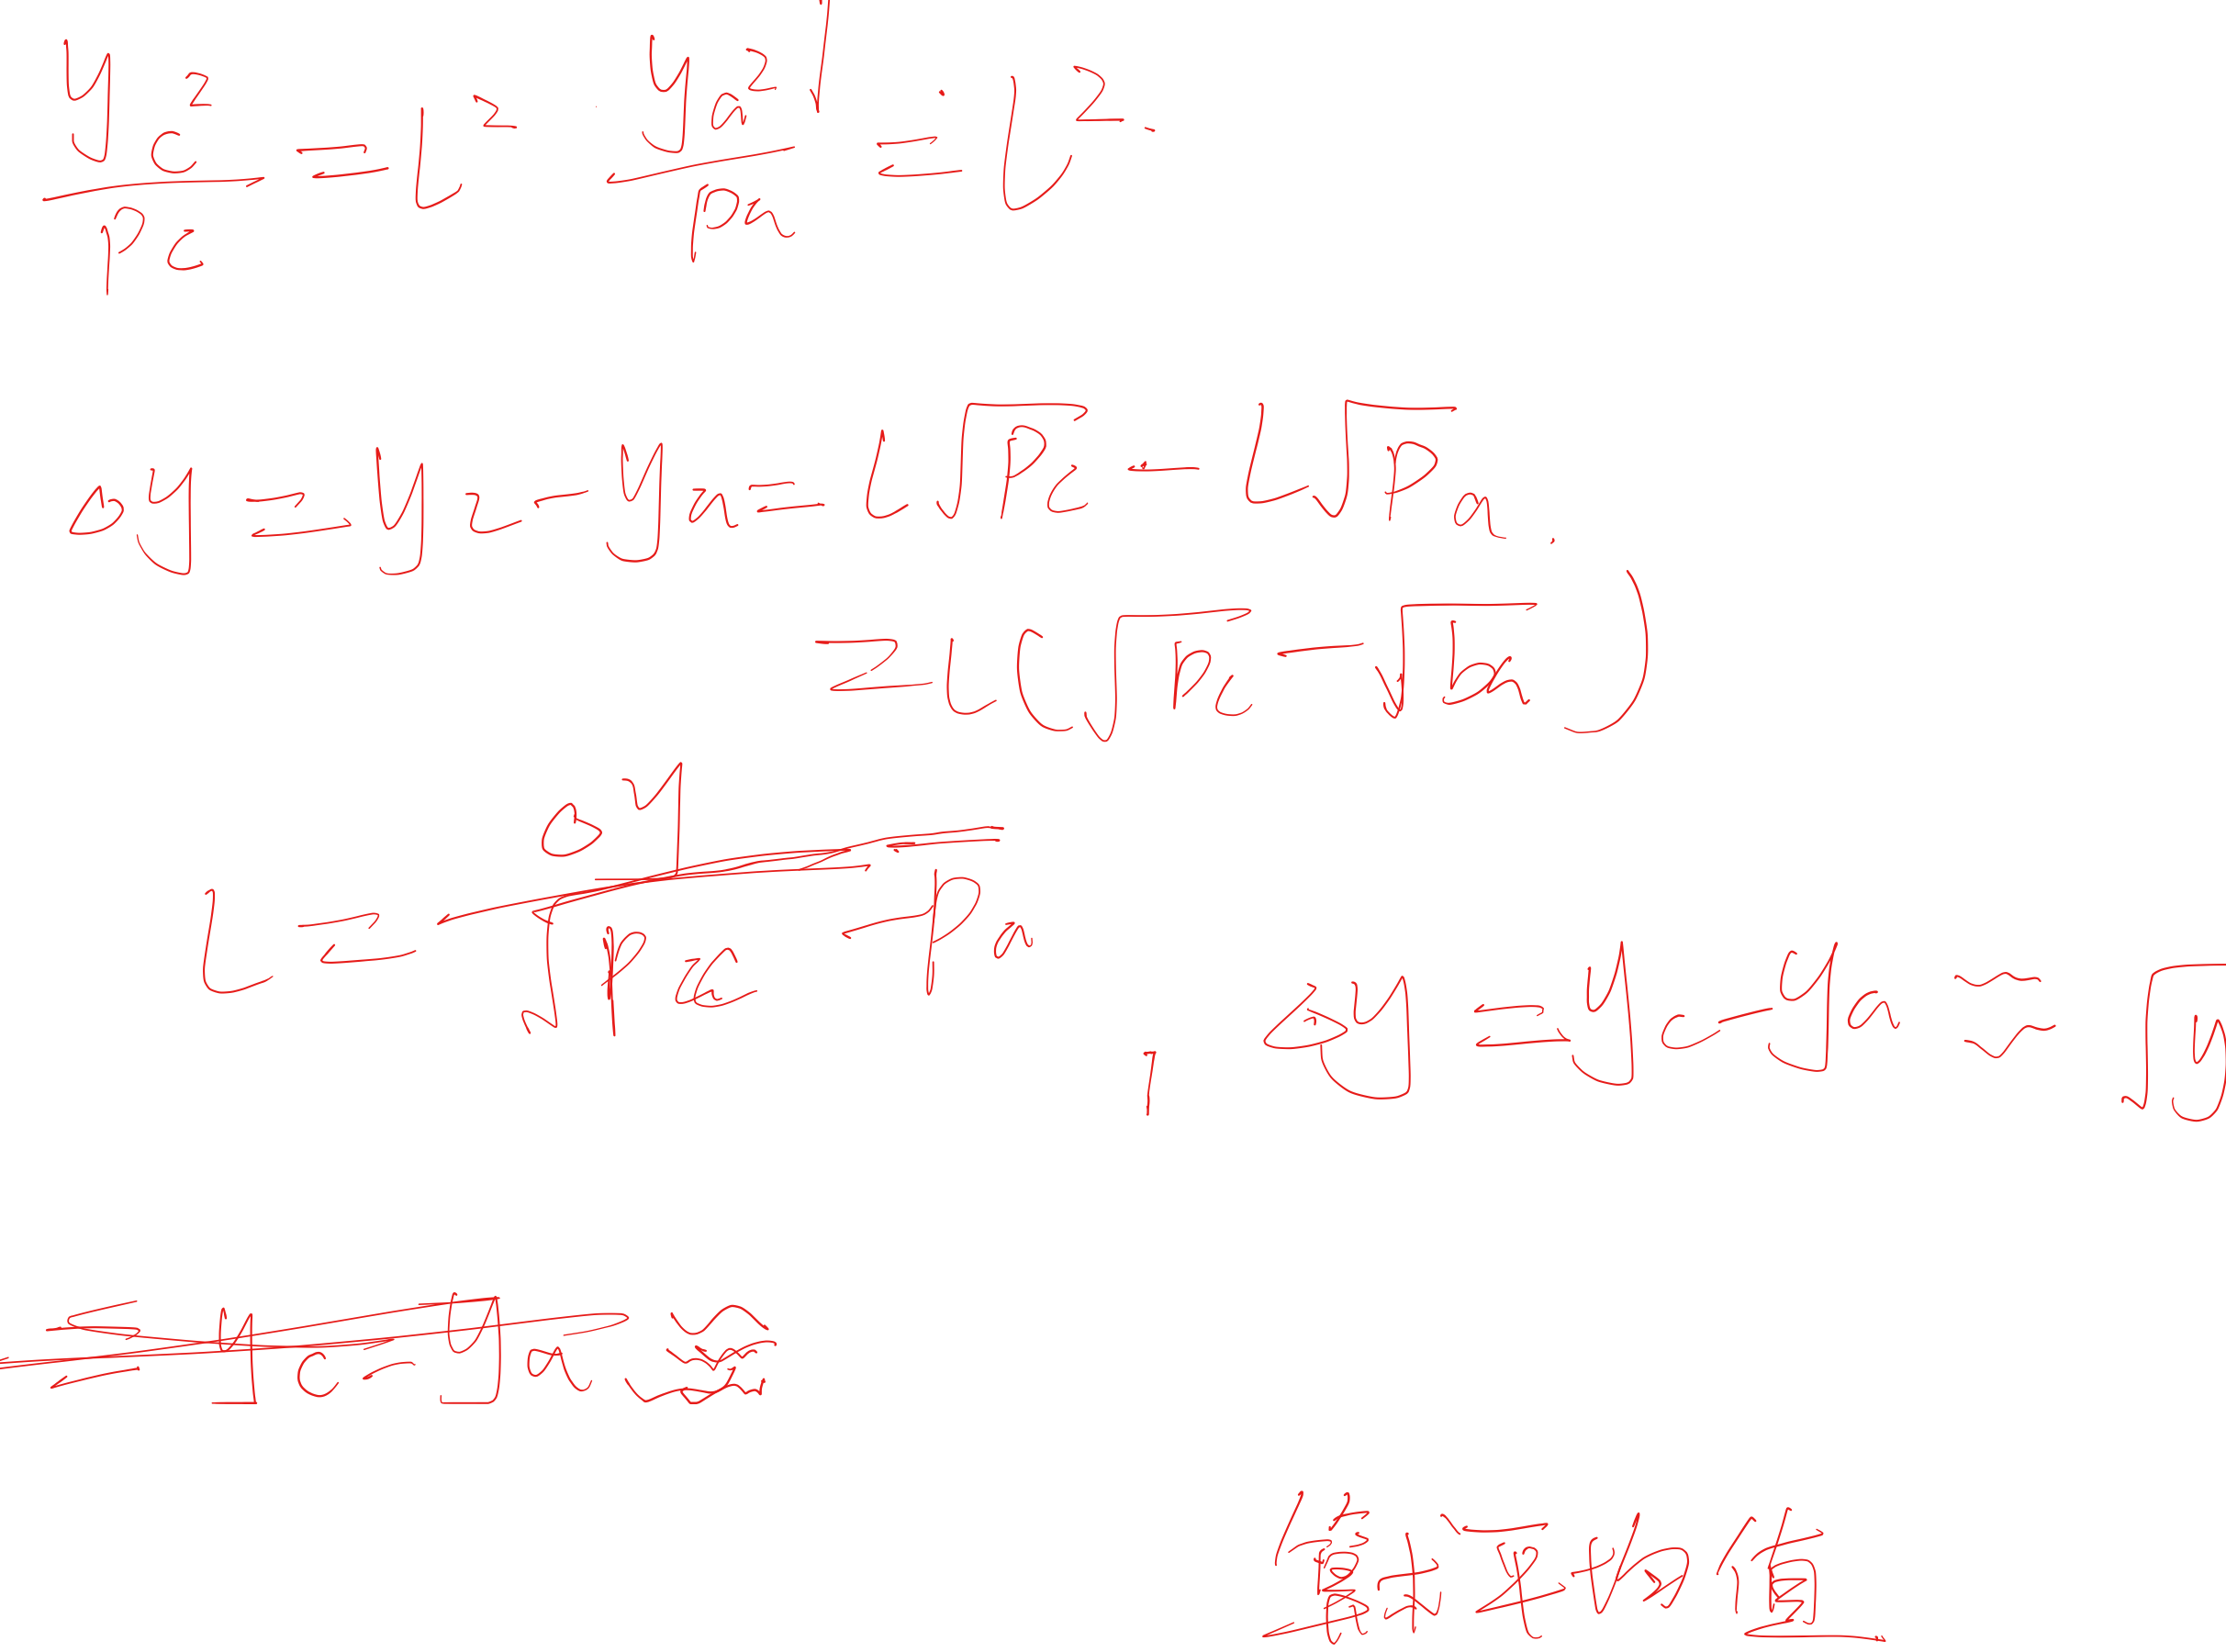 y_c² / p_c = L² · y_a² / p_a = L² ·
Δy = y_2 - y_a = L√p_c - L√p_a .
= L(√p_c - √p_a)
L = Δy / √p_c - p_a
, Δy = y_c - y_a ~ √y
= y_c - y_a ≈
算术平均值